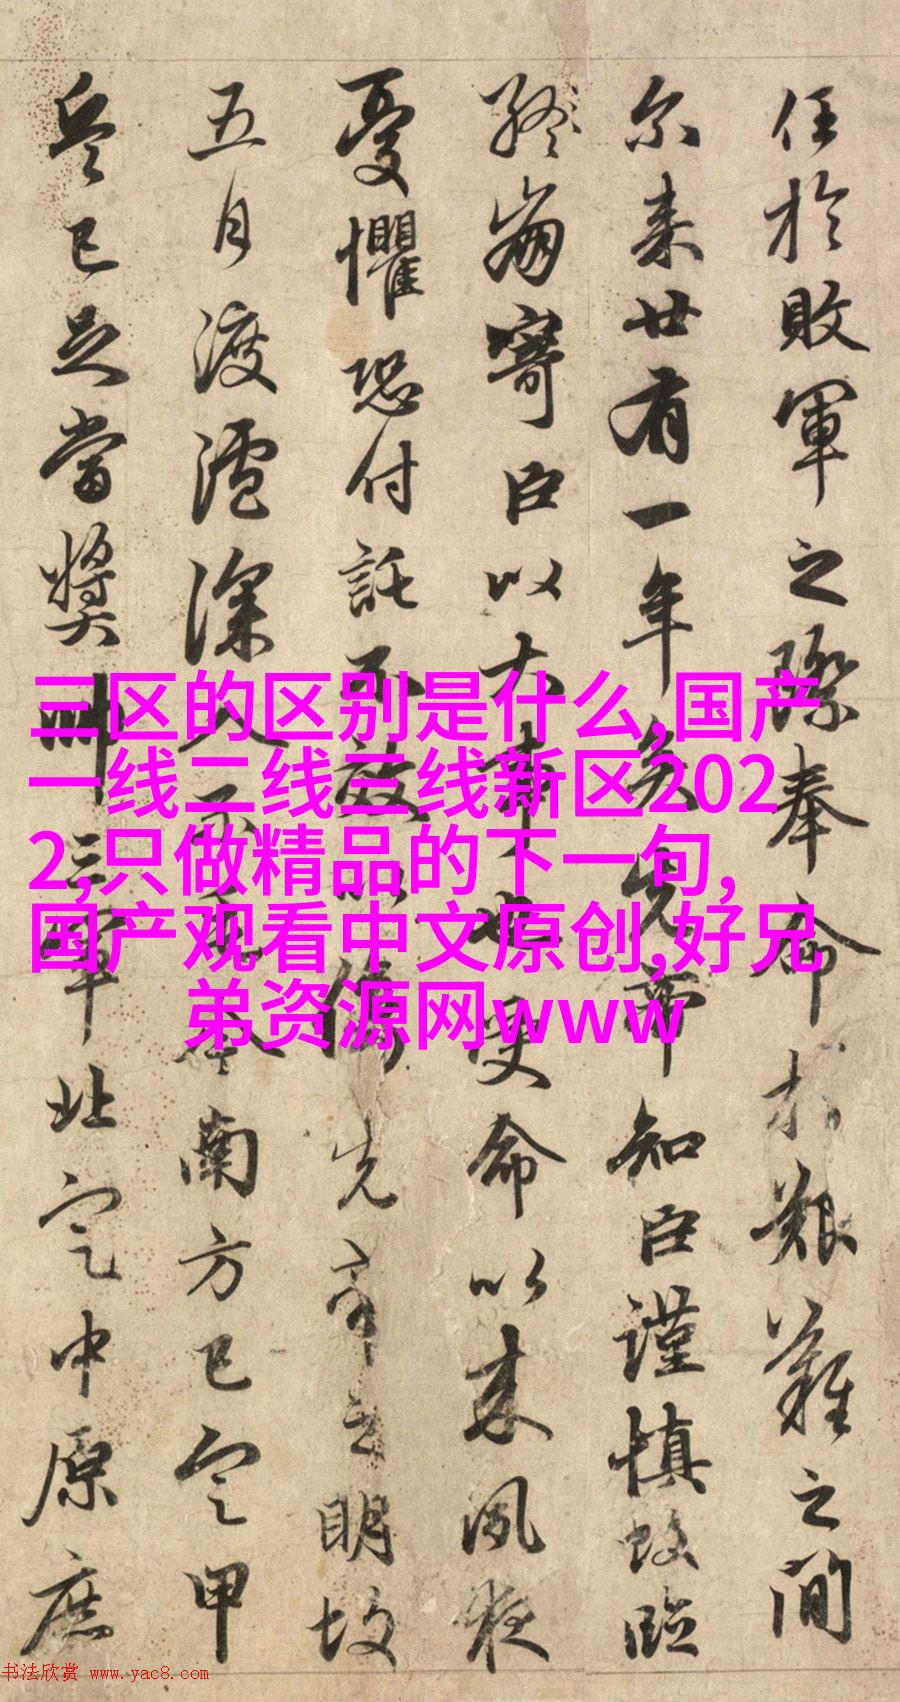 任於敗軍之際奉命於艱難之間
尔来廿有一年矣先帝知臣謹慎故臨
終崩寄臣以大事也受命以来夙夜
憂懼恐付託不效以傷先帝之明故
五月渡瀘深入不毛今南方已定甲
兵已足當獎帥三軍北定中原庶
三区的区别是什么,国产
一线二线三线新区202
2,只做精品的下一句,
国产观看中文原创,好兄
弟资源网www
书法欣赏 www.yac8.com